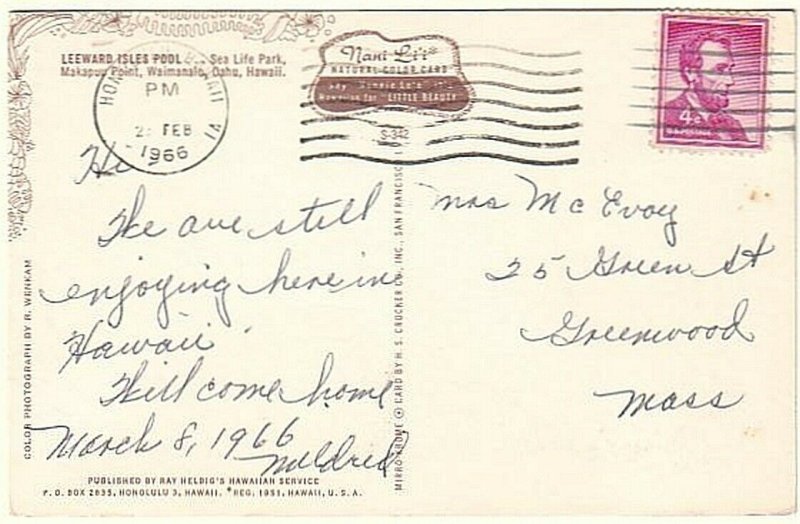 LEEWARD ISLES POOL Sea Life Park,
Makapuu Point, Waimanalo, Oahu, Hawaii.
Nani Li'i*
NATURAL COLOR CARD
Hawaiian for "LITTLE BEAUTY"
S-342
PM
FEB
1966
4¢
U.S. POSTAGE
Hi
We are still
enjoying here in
Hawaii.
Will come home
March 8, 1966
Mildred
Mrs McEvoy
25 Green St
Greenwood
Mass
COLOR PHOTOGRAPH BY R. WENKAM
MIRRO-KROME ® CARD BY H. S. CROCKER CO., INC., SAN FRANCISCO
PUBLISHED BY RAY HELBIG'S HAWAIIAN SERVICE
P. O. BOX 2835, HONOLULU 3, HAWAII. *REG. 1951, HAWAII, U. S. A.